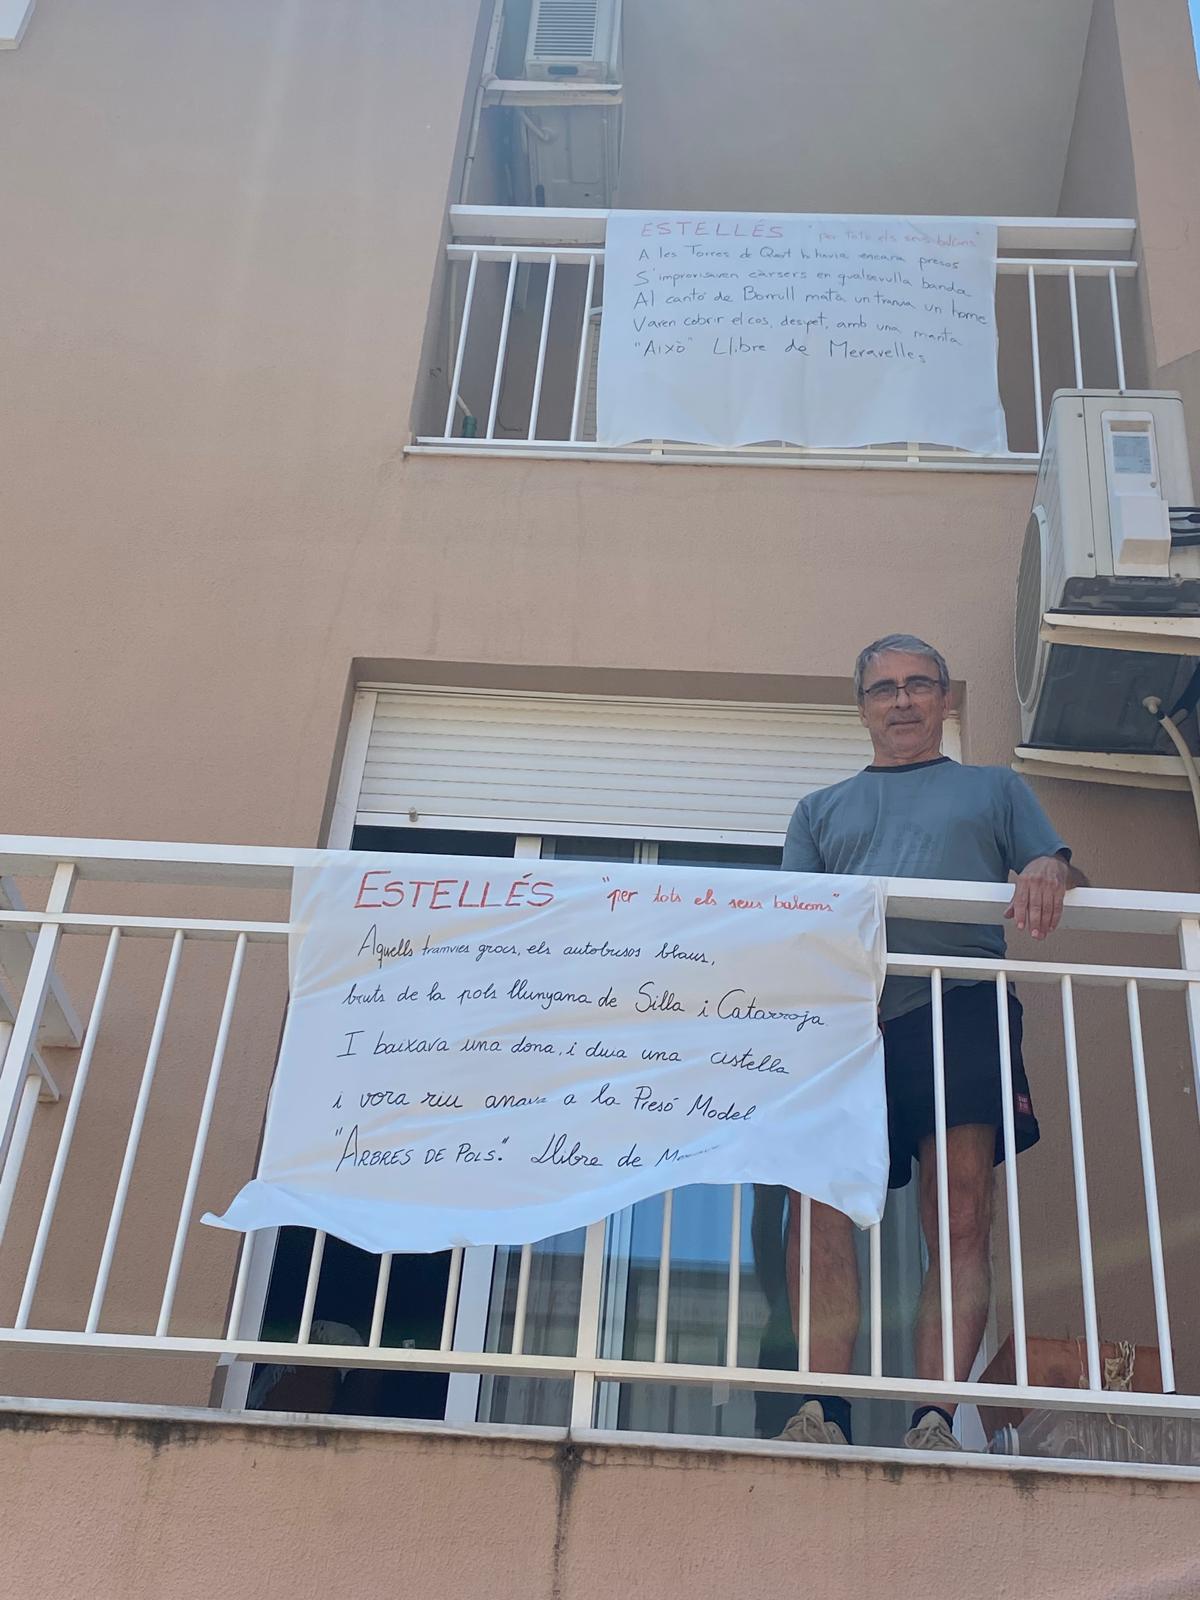 ESTELLÉS "per tots els seus balcons"
A les Torres de Quart hi havia encara presos
S'improvisaven càrsers en qualsevulla banda
Al cantó de Borrull matà un tramvia un home
Varen cobrir el cos, despet, amb una manta
"Això" Llibre de Meravelles
ESTELLÉS "per tots els seus balcons"
Aquells tramvies grocs, els autobusos blaus,
bruts de la pols llunyana de Silla i Catarroja.
I baixava una dona, i duia una cistella
i vora riu anava a la Presó Model
"ARBRES DE POLS." Llibre de